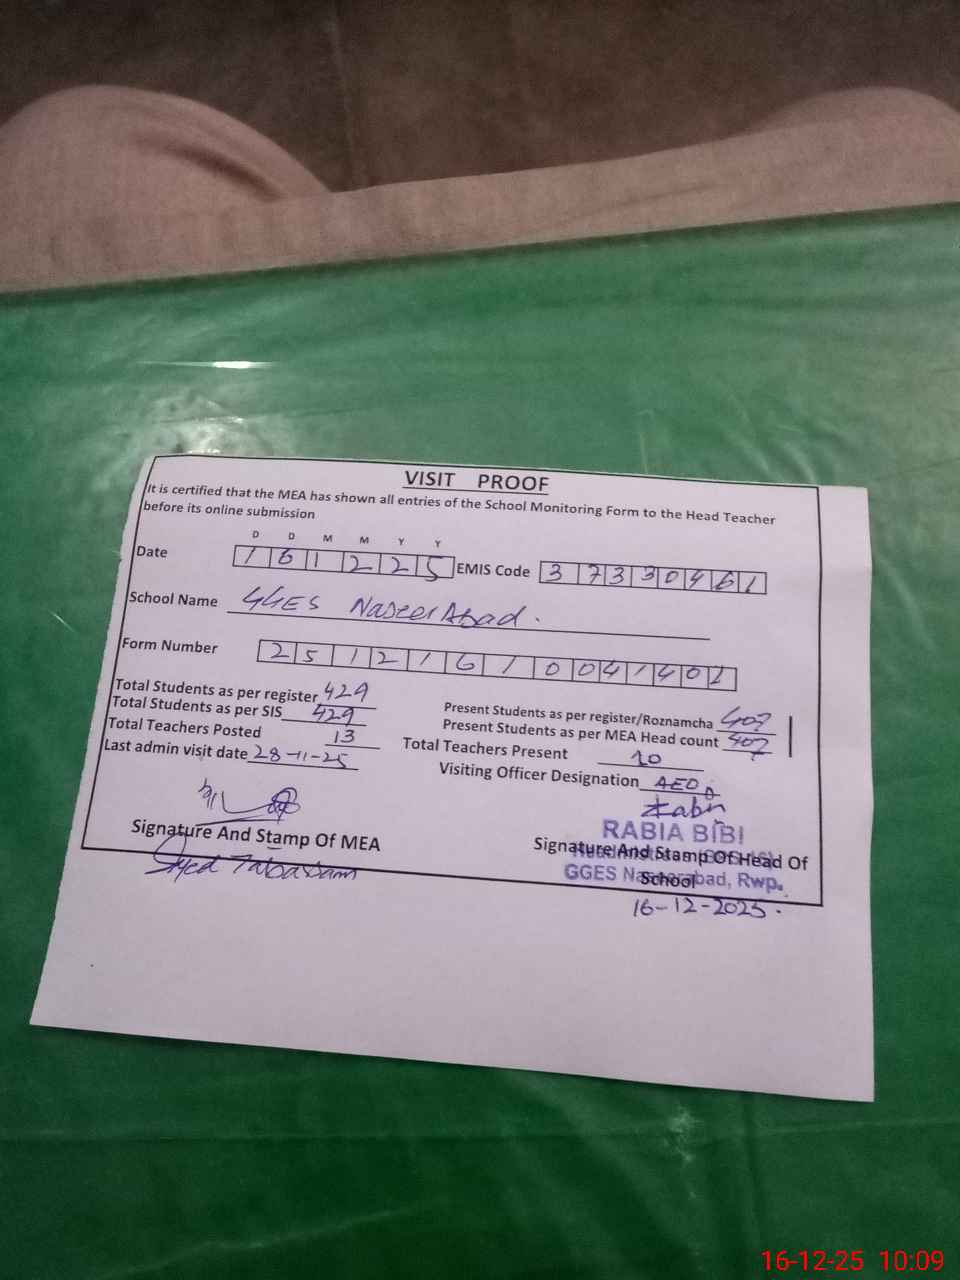 VISIT PROOF
It is certified that the MEA has shown all entries of the School Monitoring Form to the Head Teacher
before its online submission
D D M M Y Y
Date 161225 EMIS Code 37330461
School Name GGES NaseerAbad.
Form Number 25121610041401
Total Students as per register 429
Total Students as per SIS 429
Total Teachers Posted 13
Last admin visit date 28-11-25
Present Students as per register/Roznamcha 407
Present Students as per MEA Head count 407
Total Teachers Present 10
Visiting Officer Designation AEO
Signature And Stamp Of MEA
Syed Tabassam
RABIA BIBI
Signature And Stamp Of Head Of
School
GGES Naseerabad, Rwp.
16-12-2025.
16-12-25 10:09